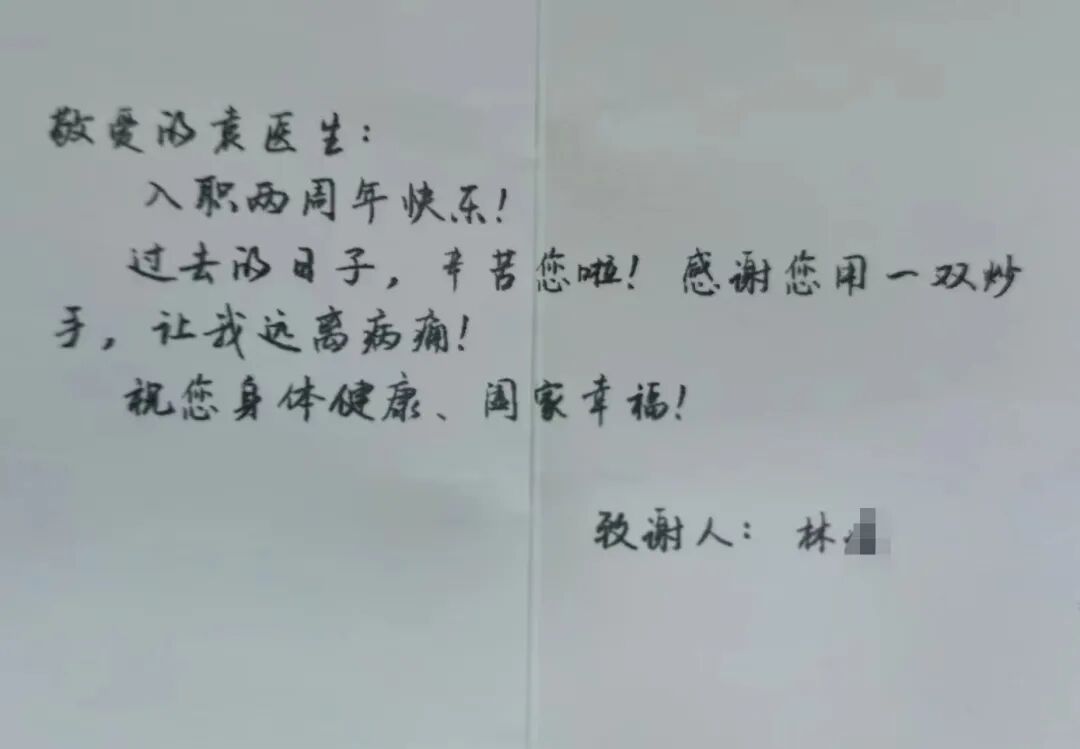 敬爱的袁医生:
入职两周年快乐!
过去的日子,辛苦您啦!感谢您用一双炒
手,让我远离病痛!
祝您身体健康、阖家幸福!
致谢人:林